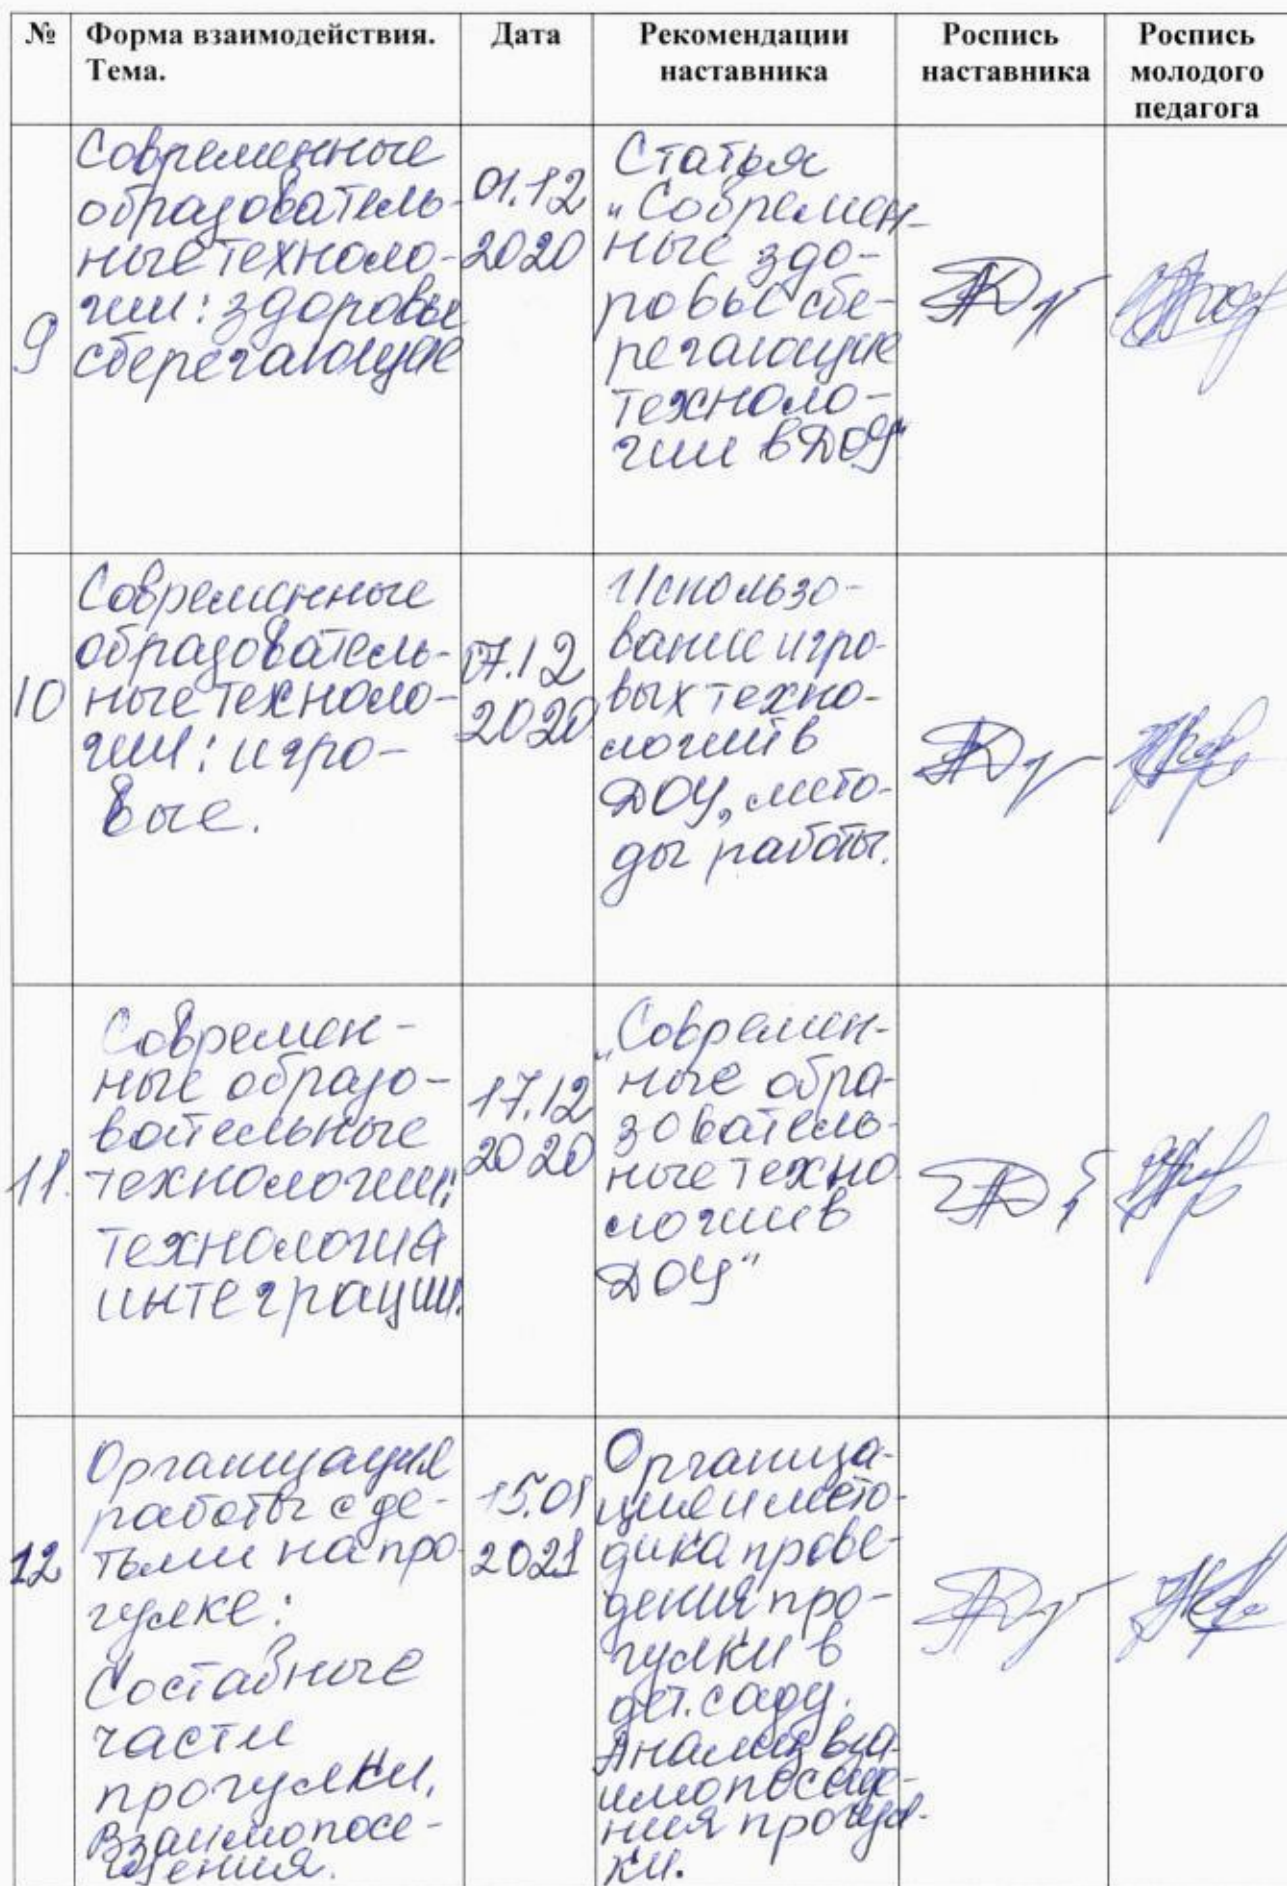 №
Форма взаимодействия.
Тема.
Дата
Рекомендации
наставника
Роспись
наставника
Роспись
молодого
педагога
9
Современные
образователь-
ные техноло-
гии: здоровье
сберегающие
01.12
2020
Статья
"Современ-
ные здо-
ровье сбе-
регающие
техноло-
гии в ДОУ"
10
Современные
образователь-
ные техноло-
гии: игро-
вые.
07.12
2020
Использо-
вание игро-
вых техно-
логий в
ДОУ, мето-
ды работы.
11.
Современ-
ные образо-
вательные
технологии:
технология
интеграции.
17.12
2020
"Современ-
ные обра-
зователь-
ные техно
логии в
ДОУ"
12
Организация
работы с де-
тьми на про-
гулке:
Составные
части
прогулки.
Взаимопосе-
щения.
15.01
2021
Организа-
ция и мето-
дика прове-
дения про-
гулки в
дет. саду.
Анализ вза-
имопосеще-
ния прогул-
ки.